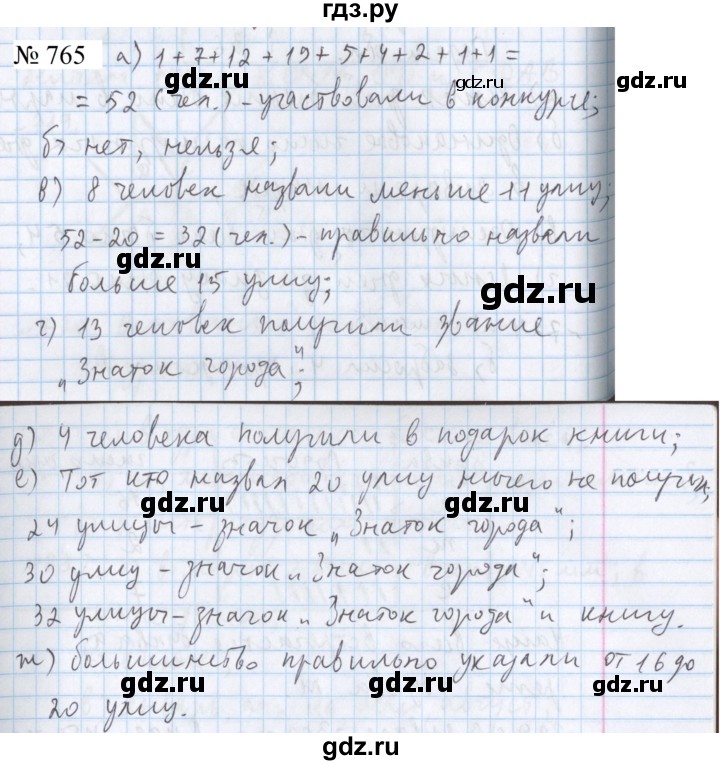 гдз.ру
№ 765 а) 1+7+12+19+5+4+2+1+1=
gdz.ru gdz.ru
= 52 (чел.) - участвовали в конкурсе;
б) нет, нельзя;
gdz.ru
в) 8 человек назвали меньше 11 улиц;
52-20 = 32 (чел.) - правильно назвали
gdz.ru gdz.ru
больше 15 улиц;
г) 13 человек получили звание
gdz.ru
„Знаток города“;
gdz.ru
д) 4 человека получили в подарок книги;
gdz.ru
е) Тот кто назвал 20 улиц ничего не получил;
24 улицы - значок „Знаток города“;
gdz.ru gdz.ru
30 улиц - значок „Знаток города“;
32 улицы - значок „Знаток города“ и книгу.
gdz.ru
ж) большинство правильно указали от 16 до
gdz.ru
20 улиц.
gdz.ru